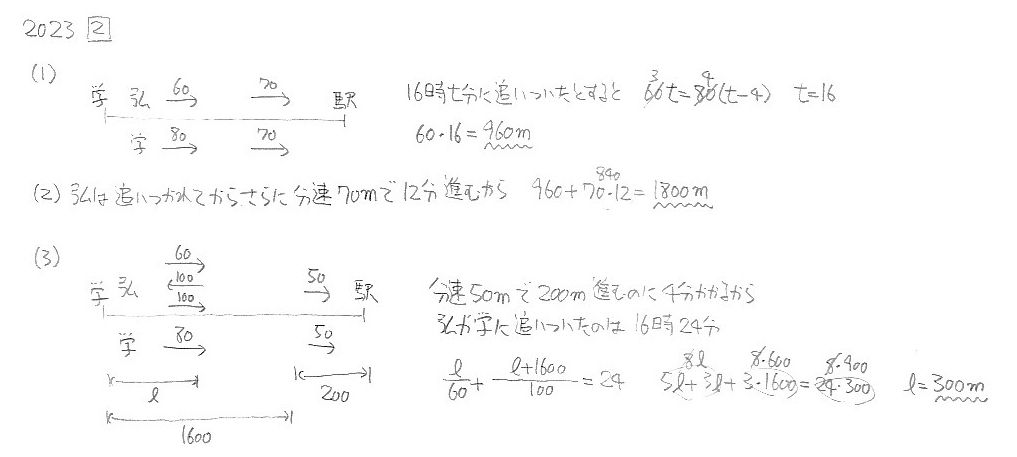 2023 2
(1)
60 70
学 弘 駅
80 70
学
16時t分に追いついたとすると 60t=80(t-4) t=16
3 4
60・16=960m
(2) 弘は追いつかれてからさらに分速70mで12分進むから 960+70・12=1800m
840
(3)
60
100
100 50
学 弘 駅
80 50
学
l 200
1600
分速50mで200m進むのに4分かかるから
弘が学に追いついたのは16時24分
l/60 + l+1600/100 = 24 5l+3l+3・1600=24・300 l=300m
8l 8・600 8・900